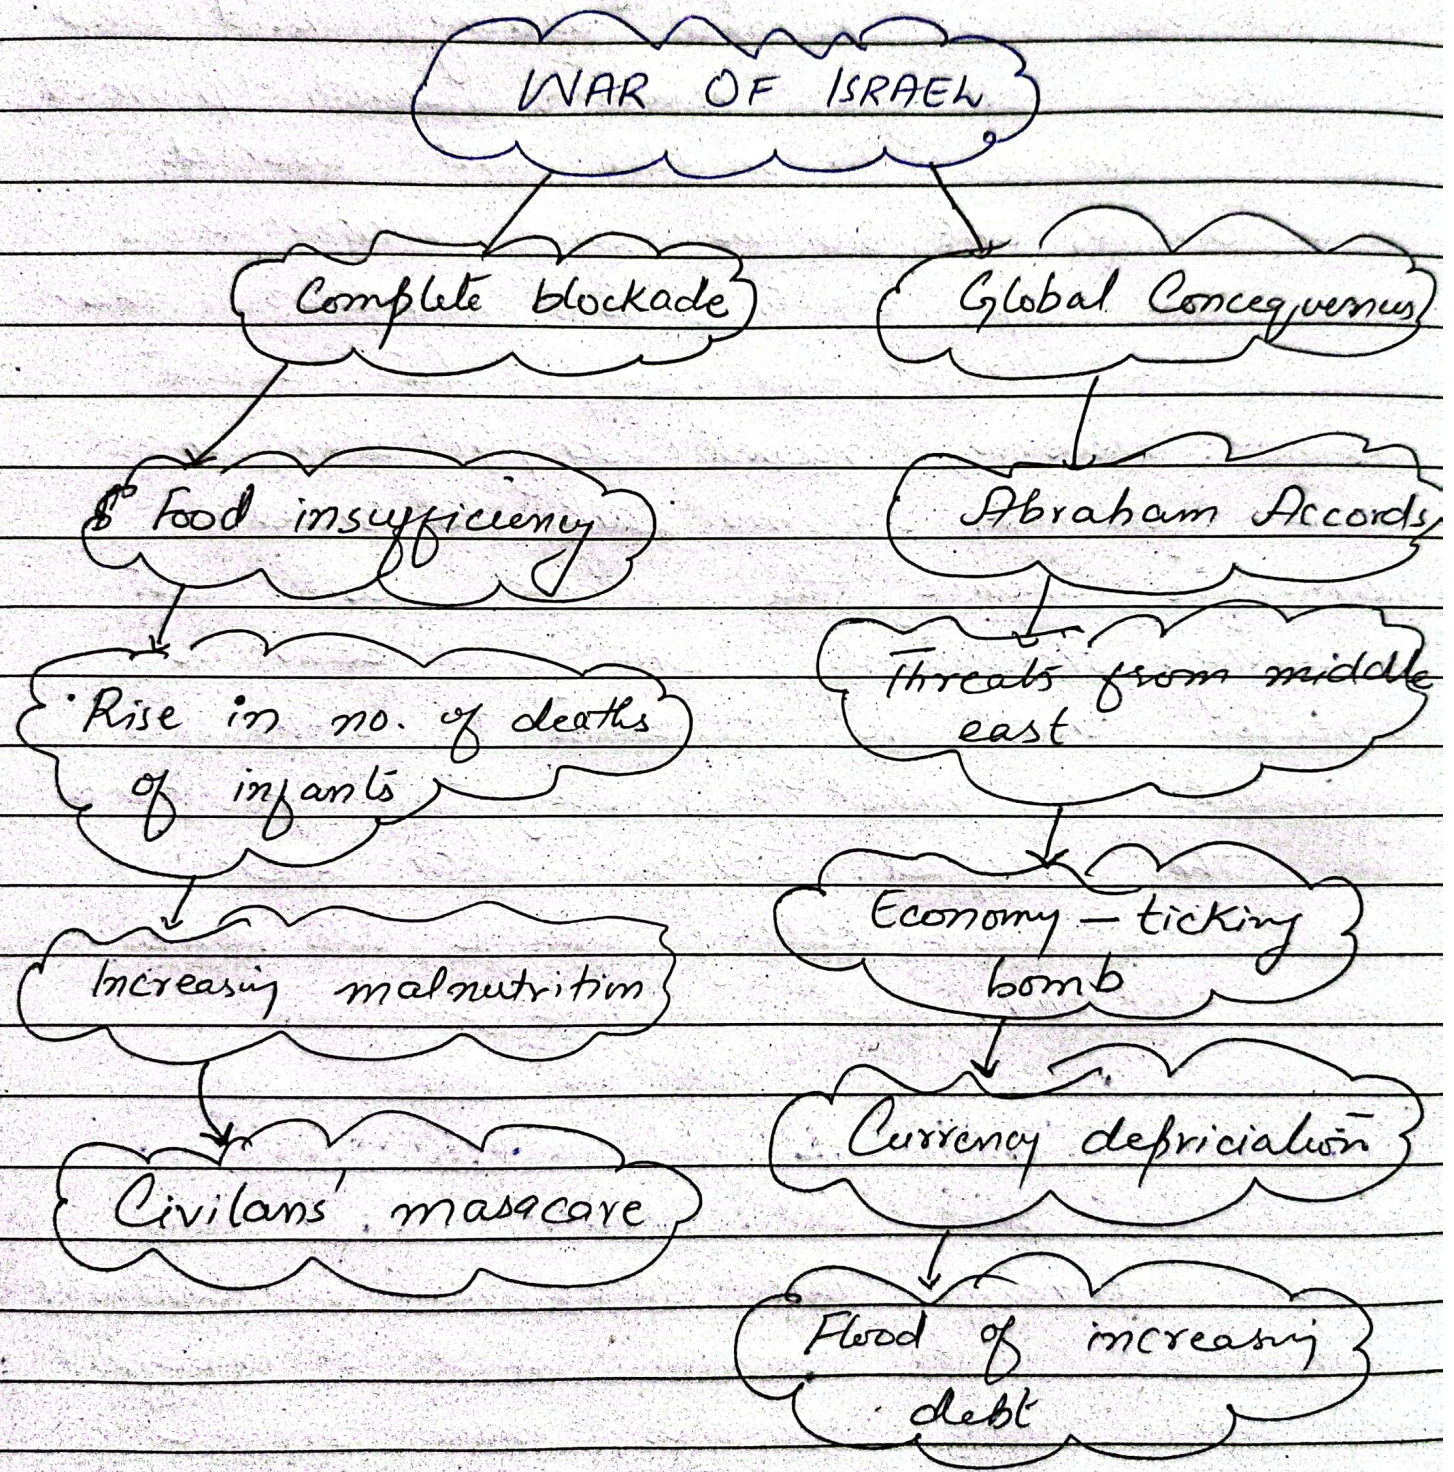 WAR OF ISRAEL
Complete blockade
Food insufficiency
Rise in no. of deaths
of infants
Increasing malnutrition
Civilans' masacare
Global Concequences
Abraham Accords
Threats from middle
east
Economy – ticking
bomb
Currency depriciation
Flood of increasing
debt